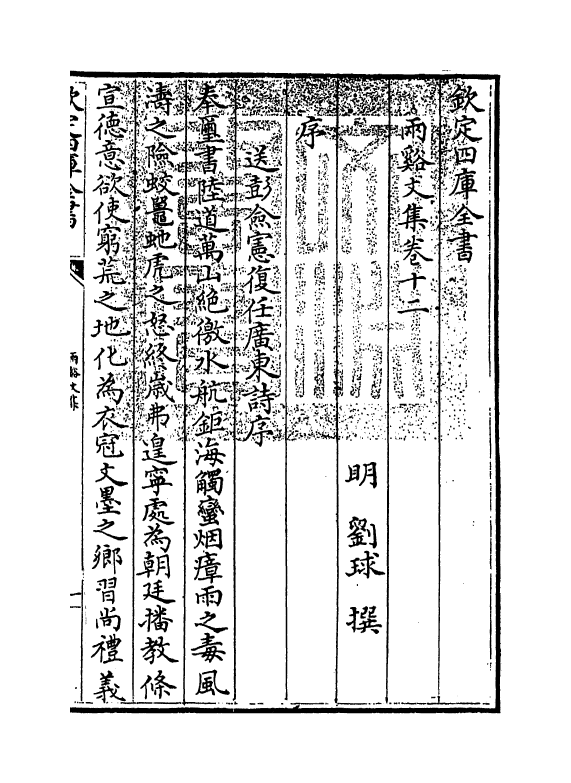 欽定四庫全書
兩谿文集卷十二
明 劉球 撰
序
送彭僉憲復任廣東詩序
奉璽書陸道萬山絶徼水航鉅海觸蠻烟瘴雨之毒風
濤之險蛟鼉虵虎之怒終歲弗遑寧處為朝廷播教條
宣德意欲使窮荒之地化為衣冠文墨之鄉習尚禮義
欽定四庫全書
兩谿文集
一